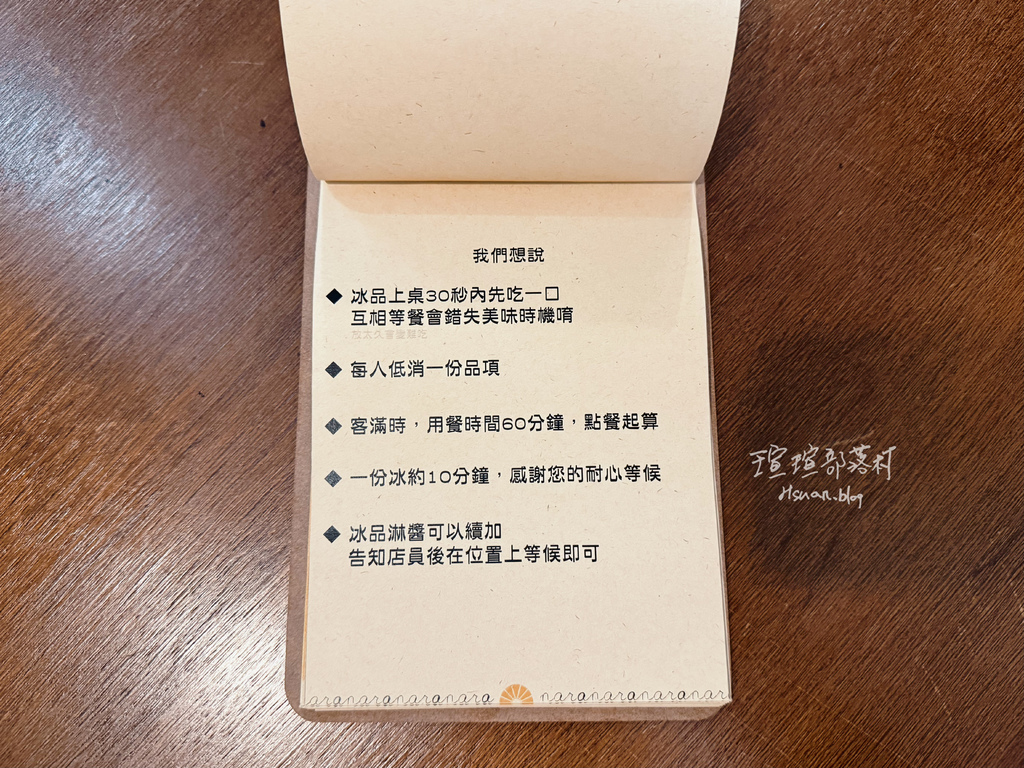 我們想說
◆ 冰品上桌30秒內先吃一口
互相等餐會錯失美味時機唷
◆ 每人低消一份品項
◆ 客滿時，用餐時間60分鐘，點餐起算
◆ 一份冰約10分鐘，感謝您的耐心等候
◆ 冰品淋醬可以續加
告知店員後在位置上等候即可
aranaranaranara naranaranaranar
瑄瑄部落村
Hsuan.blog